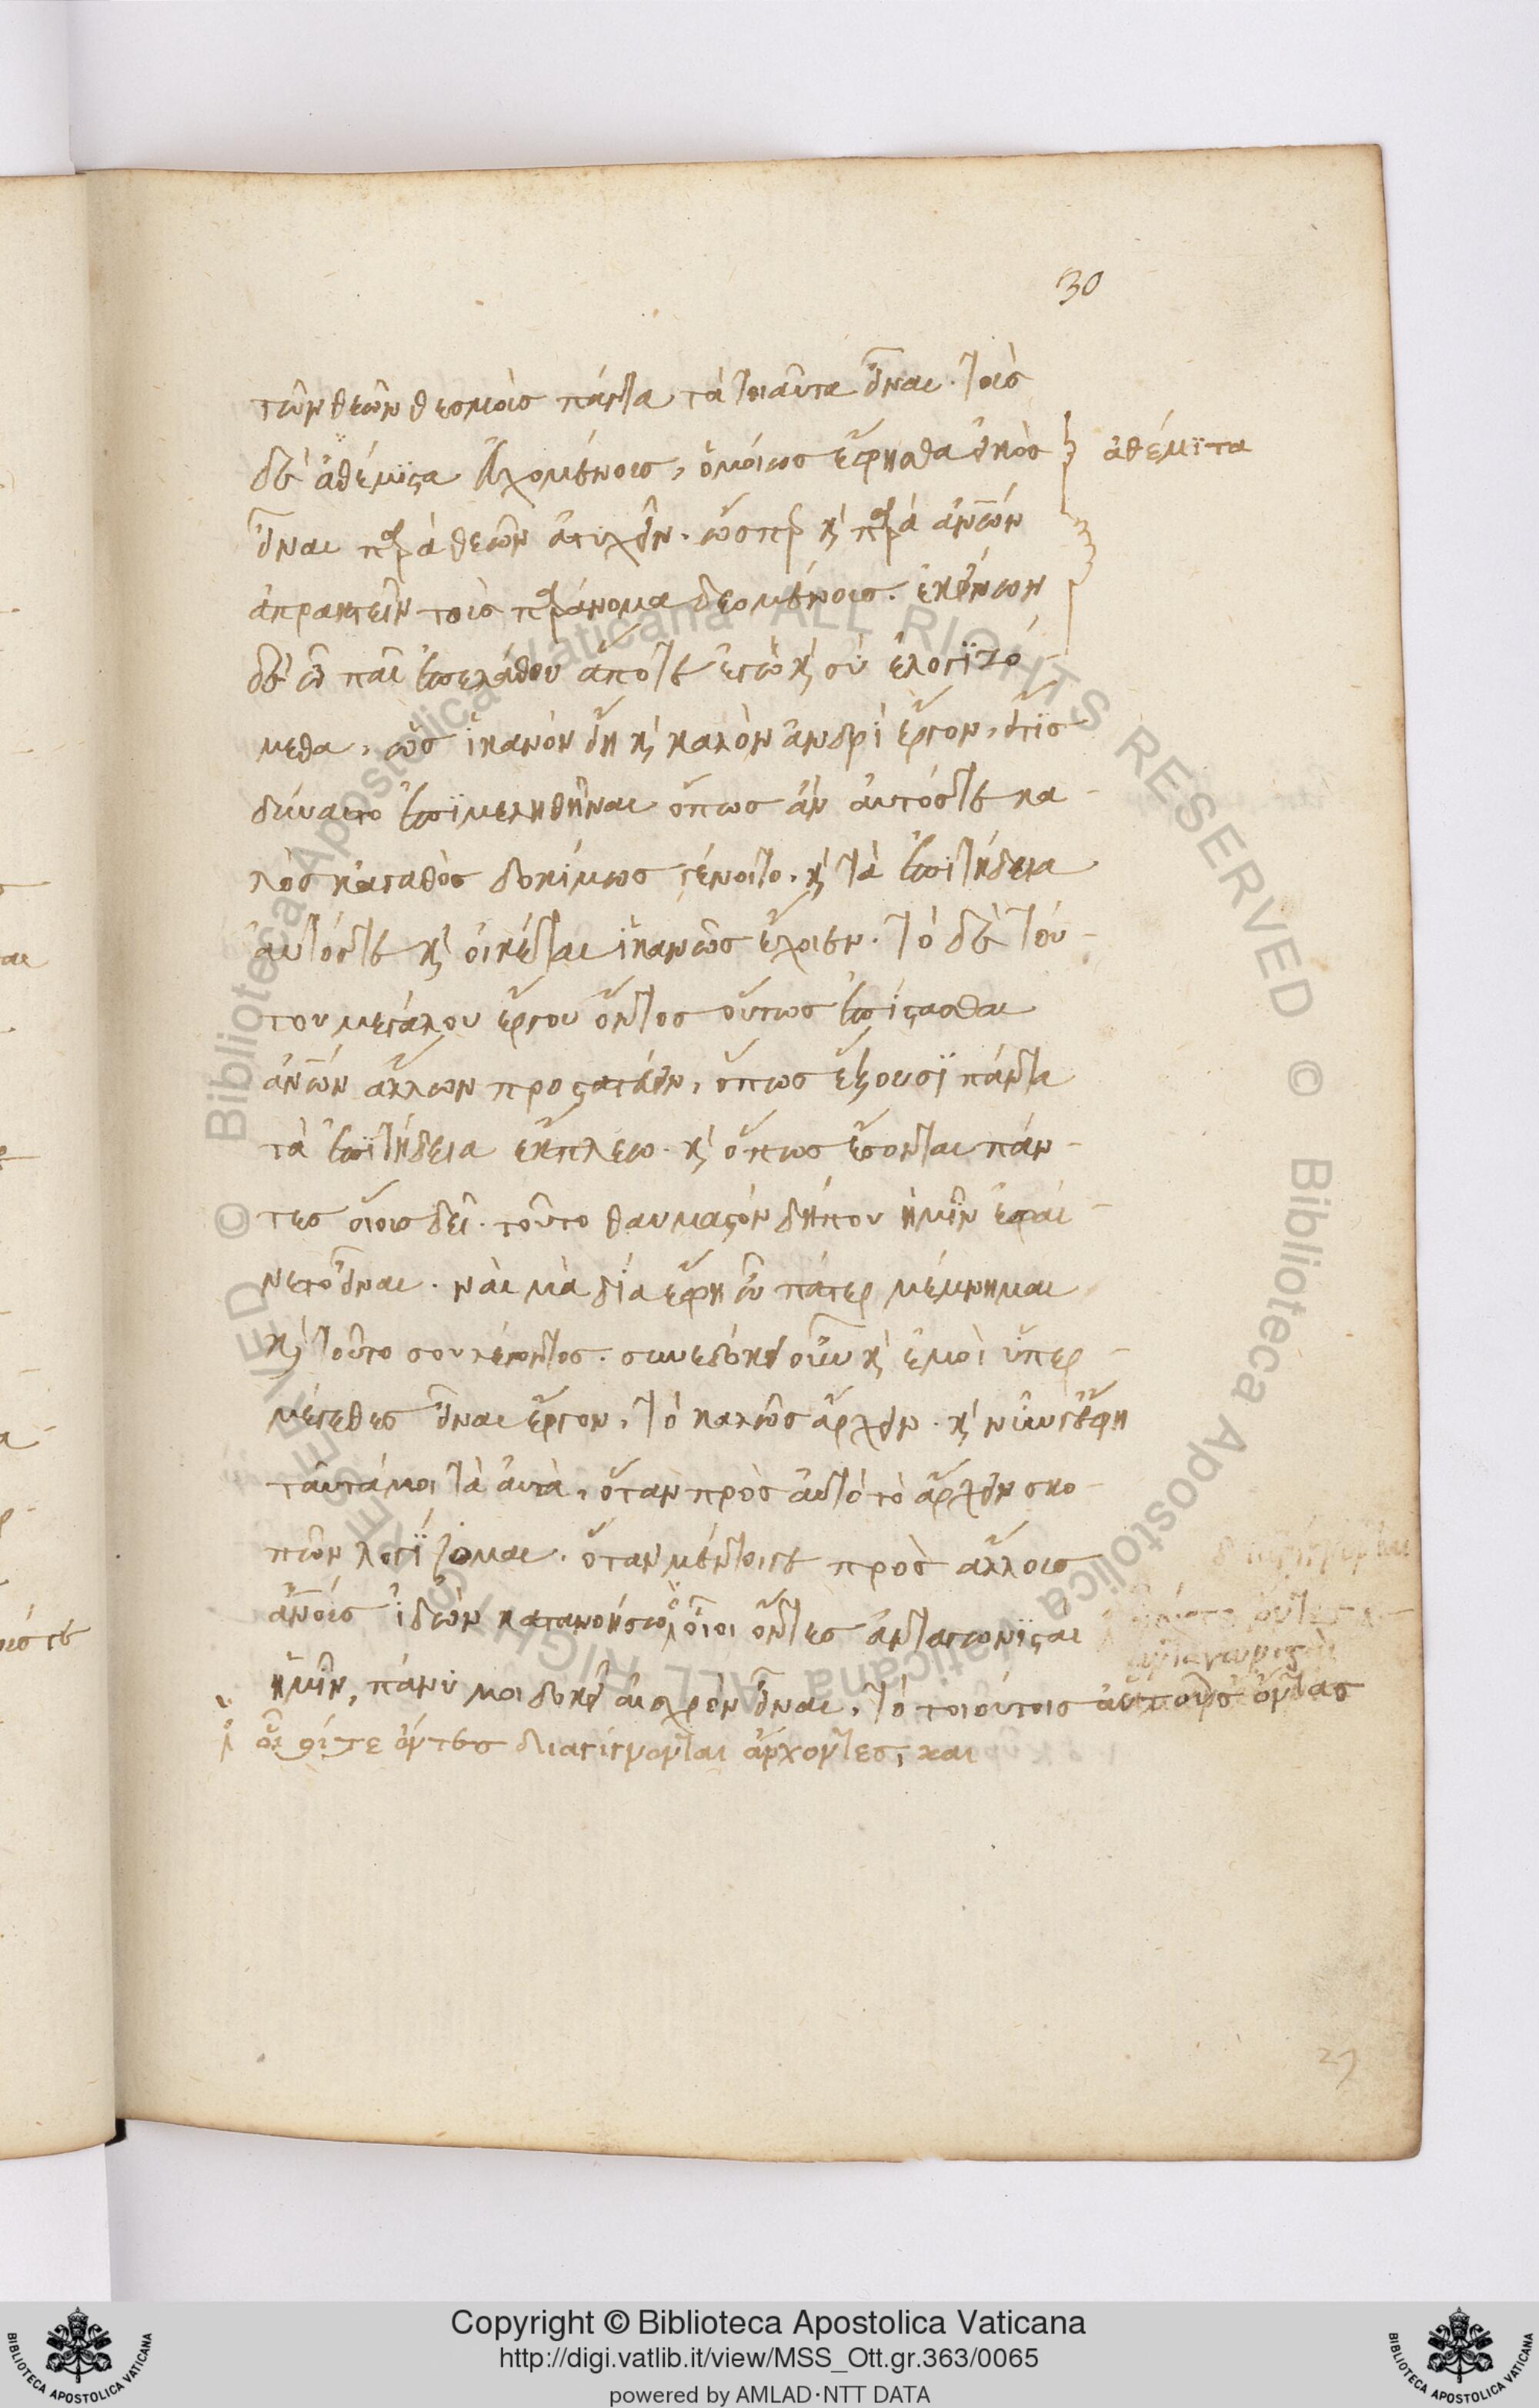 30
τῶν θεῶν θεσμοὺς πάντα τὰ τοιαῦτα εἶναι. τοὺς
δὲ ἀθέμιστα εὐχομένους, ὁμοίως ἔφησθα εἰκὸς
ἀθέμιτα
εἶναι παρὰ θεῶν ἀτυχεῖν. ὥσπερ καὶ παρὰ ἀνθρώπων
ἀπρακτεῖν τοὺς παράνομα δεομένους. ἐκείνων
δὲ ὦ παῖ ἐπελάθου ἅ ποτε ἐγὼ καὶ σὺ ἐλογιζό-
μεθα, ὡς ἱκανὸν εἴη καὶ καλὸν ἀνδρὶ ἔργον, εἴ τις
δύναιτο ἐπιμεληθῆναι ὅπως ἂν αὐτός τε κα-
λὸς κἀγαθὸς δοκίμως γένοιτο, καὶ τὰ ἐπιτήδεια
αὐτός τε καὶ οἰκέται ἱκανῶς ἔχοιεν. τὸ δὲ τού-
του μεγάλου ἔργου ὄντος οὕτως ἐπίστασθαι
ἀνθρώπων ἄλλων προστατεύειν, ὅπως ἕξουσι πάντα
τὰ ἐπιτήδεια ἔκπλεω. καὶ ὅπως ἔσονται πάν-
τες οἵους δεῖ. τοῦτο θαυμαστὸν δήπου ἡμῖν ἐφαί-
νετο εἶναι. ναὶ μὰ δία ἔφη ὦ πάτερ μέμνημαι
καὶ τοῦτο σου λέγοντος. συνεδόκει οὖν καὶ ἐμοὶ ὑπερ-
μέγεθες εἶναι ἔργον, τὸ καλῶς ἄρχειν. καὶ νῦν γ' ἔφη
ταῦτά μοι τὰ αὐτὰ, ὅταν πρὸς αὐτὸ τὸ ἄρχειν σκο-
πῶν λογίζομαι. ὅταν μέντοι γε πρὸς ἄλλους
ἀνθρώπους ἰδὼν κατανοήσω οἷοι ὄντες ἀνταγωνισταὶ
ἡμῖν, πάνυ μοι δοκεῖ αἰσχρὸν εἶναι, τὸ τοιούτους αὐτοὺς ὄντας
οἷοί τε ὄντες διαγίγνονται ἄρχοντες, και
29
Copyright © Biblioteca Apostolica Vaticana
http://digi.vatlib.it/view/MSS_Ott.gr.363/0065
powered by AMLAD·NTT DATA